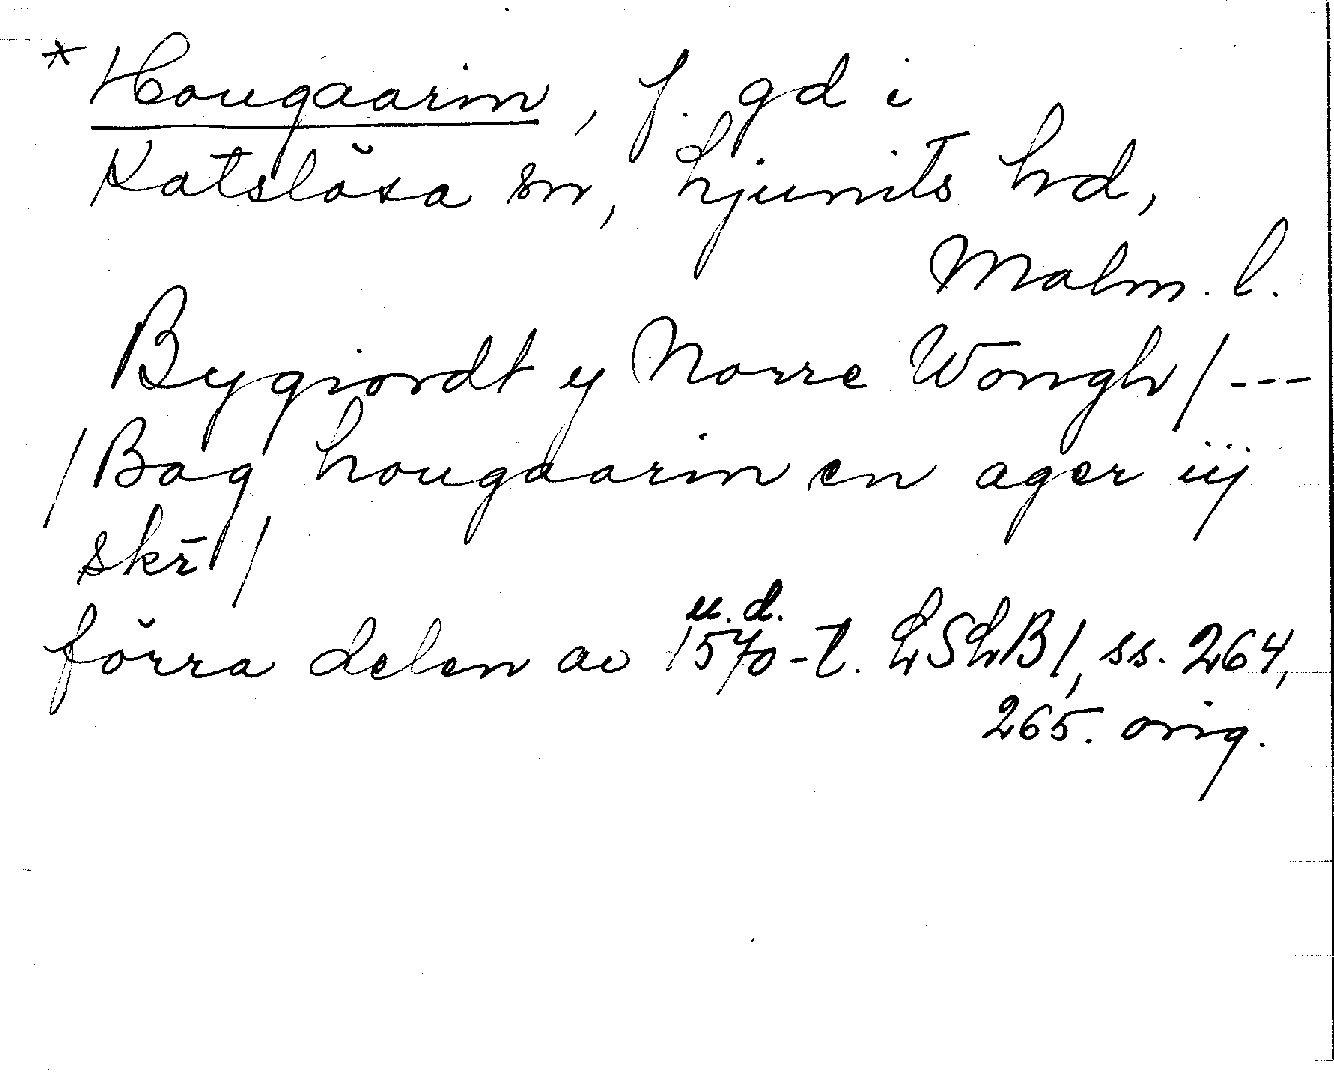 * Hougaarin, f. gd i
Katslösa sn, Ljunits hd,
Malm. l.
Bygiordt y Norre Wongh / ---
/ Bag hougaarin en ager iij
skr̄ /
u. d.
förra delen av 1570-t. LSLB1, ss. 264,
265. orig.